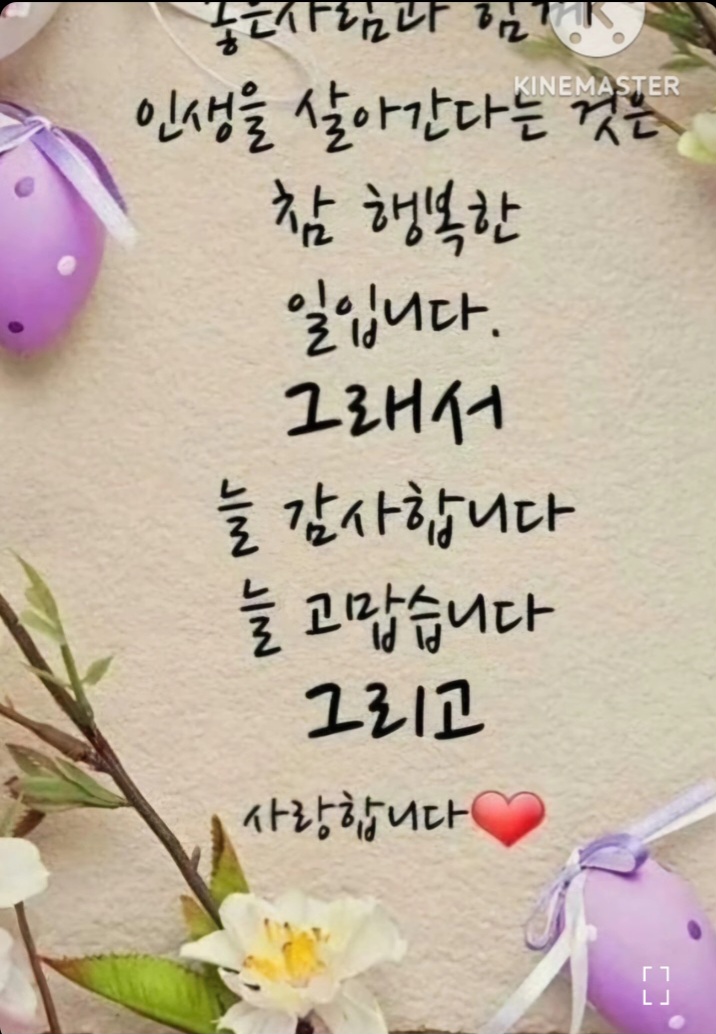 좋은사람과 함께
KINEMASTER
인생을 살아간다는 것은
참 행복한
일입니다.
그래서
늘 감사합니다
늘 고맙습니다
그리고
사랑합니다❤️